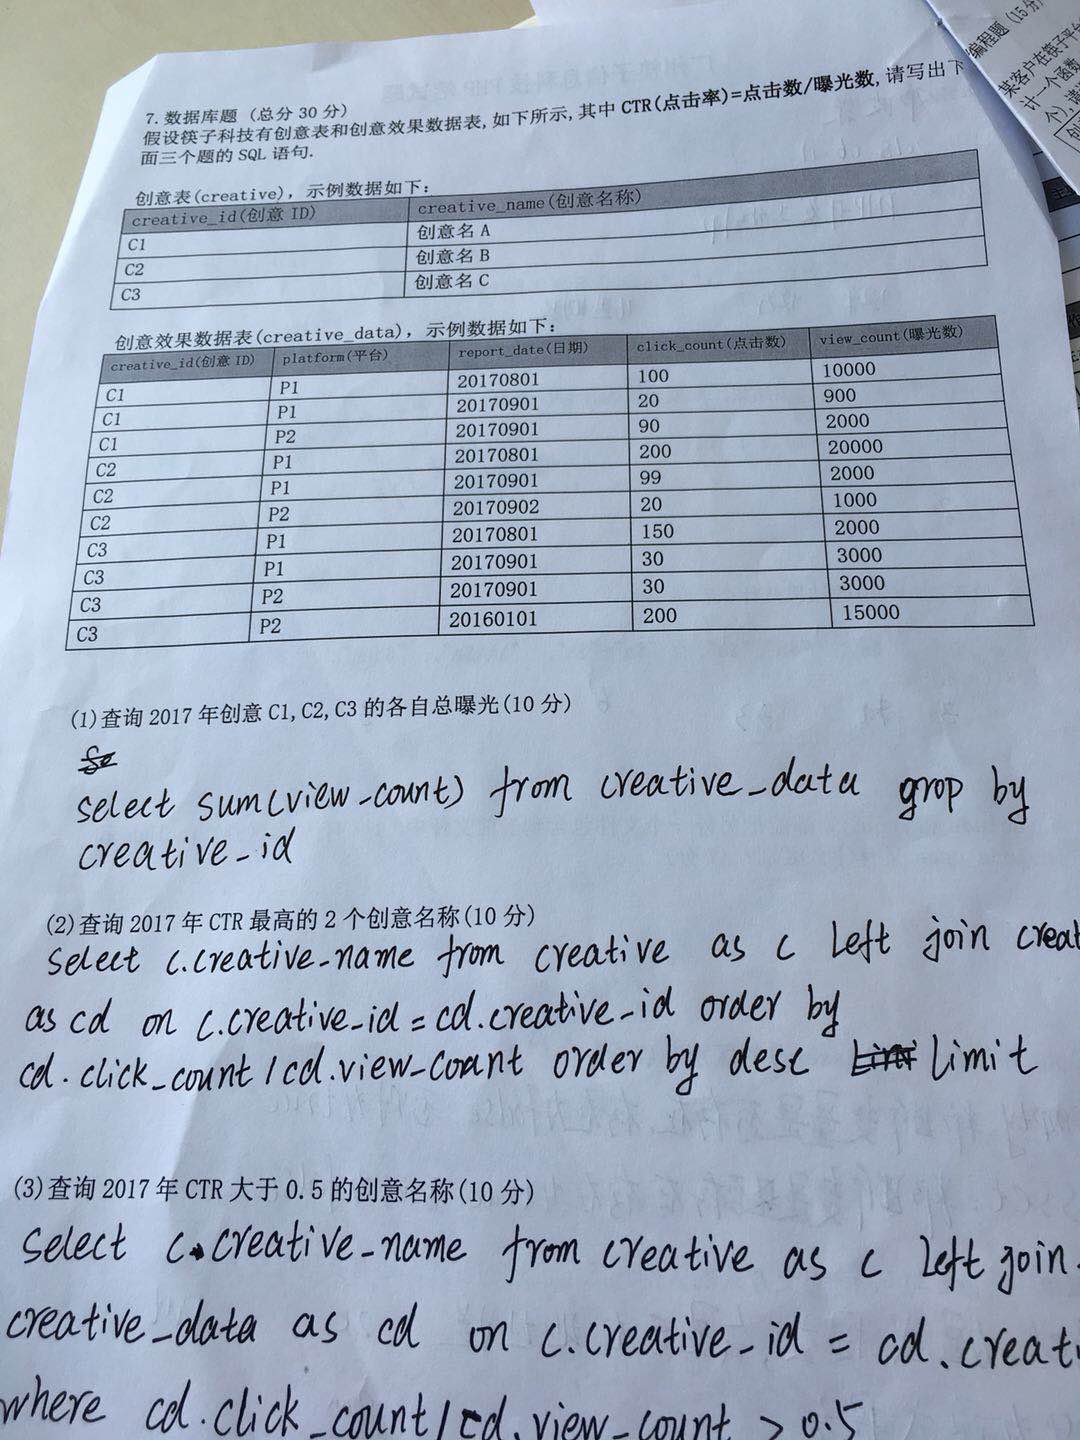 7. 数据库题 (总分 30 分)
假设筷子科技有创意表和创意效果数据表, 如下所示, 其中 CTR(点击率)=点击数/曝光数, 请写出下
面三个题的 SQL 语句.
创意表(creative), 示例数据如下:
creative_id(创意 ID) creative_name(创意名称)
C1 创意名 A
C2 创意名 B
C3 创意名 C
创意效果数据表(creative_data), 示例数据如下:
creative_id(创意 ID) platform(平台) report_date(日期) click_count(点击数) view_count(曝光数)
C1 P1 20170801 100 10000
C1 P1 20170901 20 900
C1 P2 20170901 90 2000
C2 P1 20170801 200 20000
C2 P1 20170901 99 2000
C2 P2 20170902 20 1000
C3 P1 20170801 150 2000
C3 P1 20170901 30 3000
C3 P2 20170901 30 3000
C3 P2 20160101 200 15000
(1)查询 2017 年创意 C1, C2, C3 的各自总曝光(10 分)
select sum(view_count) from creative_data grop by
creative_id
(2)查询 2017 年 CTR 最高的 2 个创意名称(10 分)
select c.creative_name from creative as c left join creat
as cd on c.creative_id = cd.creative_id order by
cd.click_count / cd.view_count order by desc limit
(3)查询 2017 年 CTR 大于 0.5 的创意名称(10 分)
select c.creative_name from creative as c left join
creative_data as cd on c.creative_id = cd.creati
where cd.click_count / cd.view_count > 0.5
编程题 (15 分)
某客户在筷子平台
计一个函数